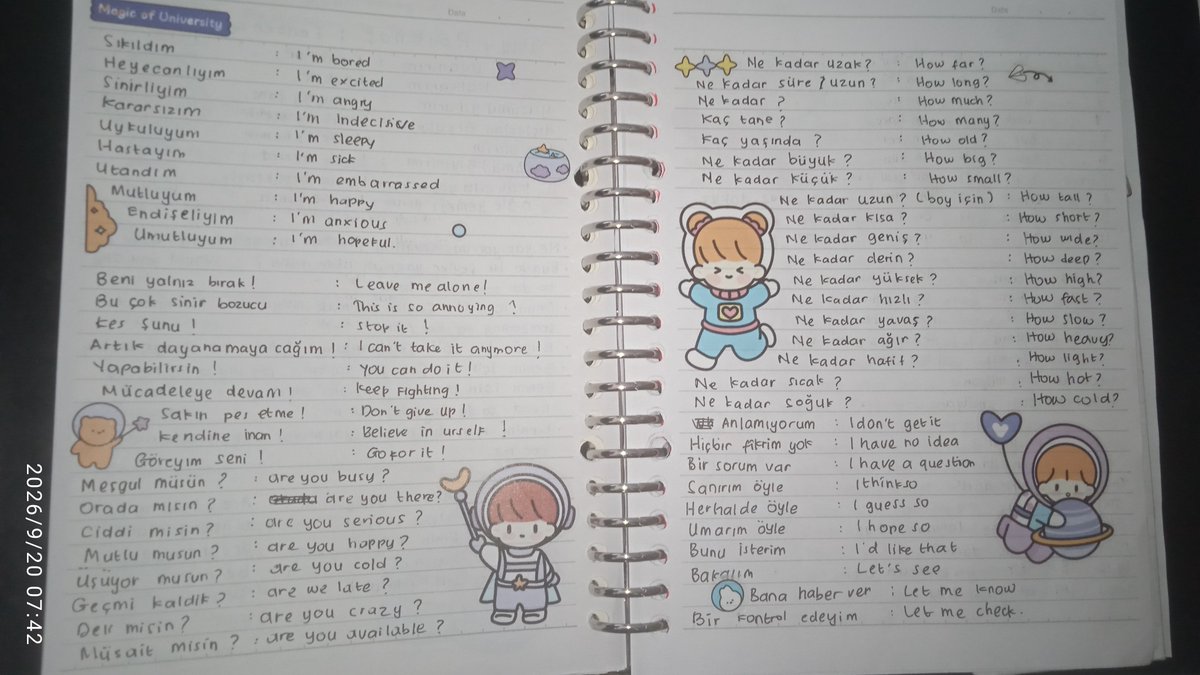 Magic of University
Date
Sıkıldım : I'm bored
Heyecanlıyım : I'm excited
Sinirliyim : I'm angry
Kararsızım : I'm Indecisive
Uykuluyum : I'm sleepy
Hastayım : I'm sick
Utandım : I'm embarrassed
Mutluyum : I'm happy
Endişeliyim : I'm anxious
Umutluyum : I'm hopeful.
Beni yalnız bırak! : Leave me alone!
Bu çok sinir bozucu : This is so annoying !
Kes şunu ! : stop it !
Artık dayanamaya cağım ! : I can't take it anymore !
Yapabilirsin ! : you can do it !
Mücadeleye devam! : Keep Fighting!
Sakın pes etme! : Don't give up!
Kendine inan ! : Believe in urself !
Göreyim seni ! : Go for it!
Meşgul müsün ? : are you busy?
Orada mısın ? : are you there?
Ciddi misin? : are you serious ?
Mutlu musun ? : are you happy?
Üşüyor musun? : are you cold ?
Geçmi kaldık? : are we late?
Deli misin? : are you crazy ?
Müsait misin ? : are you available ?
Date
Ne kadar uzak? : How far?
Ne kadar süre / uzun? : How long?
Ne kadar ? : How much?
Kaç tane ? : How many?
Kaç yaşında ? : How old?
Ne kadar büyük ? : How big?
Ne kadar küçük? : How small?
Ne kadar uzun? (boy için) : How tall ?
Ne kadar kısa? : How short?
Ne kadar geniş? : How wide?
Ne kadar derin? : How deep?
Ne kadar yüksek? : How high?
Ne kadar hızlı? : How fast?
Ne kadar yavaş? : How slow?
Ne kadar ağır? : How heavy?
Ne kadar hafif? : How light?
Ne kadar sıcak ? : How hot?
Ne kadar soğuk ? : How cold?
Anlamıyorum : I don't get it
Hiçbir fikrim yok : I have no idea
Bir sorum var : I have a question
Sanırım öyle : I think so
Herhalde öyle : I guess so
Umarım öyle : I hope so
Bunu isterim : I'd like that
Bakalım : Let's see
Bana haber ver : Let me know
Bir kontrol edeyim : Let me check.
2026/9/20 07:42